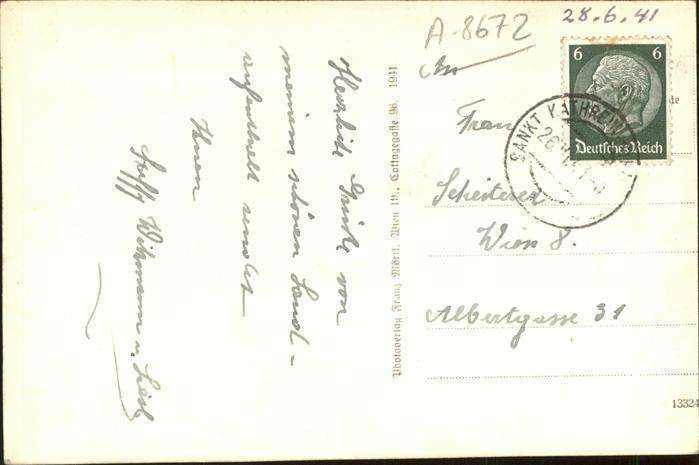 Herzliche Grüße von
meinem schönen Land-
aufenthalt sendet
Ihnen
Steffy Wihmann u. Liesl
Photoverlag Franz Mörtl, Wien 19., Cottagegasse 96. 1941
A-8672
28.6.41
6 6
Deutsches Reich
SANKT KATHREIN
An
Frau
Scheiterer
Wien 8.
Albertgasse 31
13324